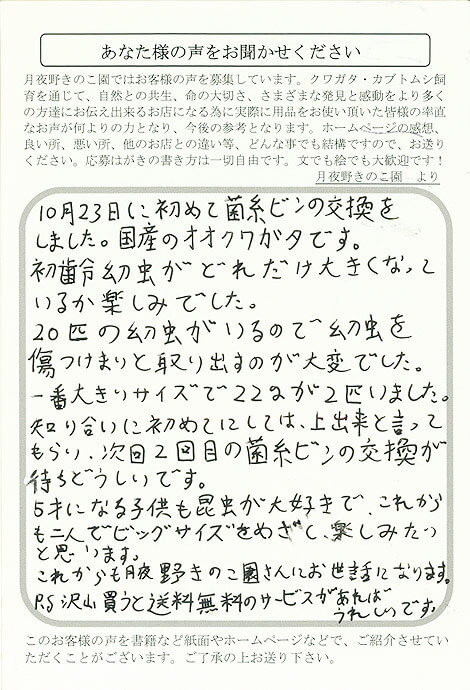 あなた様の声をお聞かせください
月夜野きのこ園ではお客様の声を募集しています。クワガタ・カブトムシ飼
育を通じて、自然との共生、命の大切さ、さまざまな発見と感動をより多く
の方達にお伝え出来るお店になる為に実際に用品をお使い頂いた皆様の率直
なお声が何よりの力となり、今後の参考となります。ホームページの感想、
良い所、悪い所、他のお店との違い等、どんな事でも結構ですので、お送り
ください。応募はがきの書き方は一切自由です。文でも絵でも大歓迎です！
月夜野きのこ園　より
10月23日に初めて菌糸ビンの交換を
しました。国産のオオクワガタです。
初齢幼虫がどれだけ大きくなって
いるか楽しみでした。
20匹の幼虫がいるので幼虫を
傷つけまいと取り出すのが大変でした。
一番大きいサイズで22gが2匹いました。
知り合いに初めてにしては、上出来と言って
もらい、次回2回目の菌糸ビンの交換が
待ちどうしいです。
5才になる子供も昆虫が大好きで、これから
も二人でビッグサイズをめざし、楽しみたい
と思います。
これからも月夜野きのこ園さんにお世話になります。
P.S 沢山買うと送料無料のサービスがあれば
うれしいです。
このお客様の声を書籍など紙面やホームページなどで、ご紹介させてい
ただくことがございます。ご了承の上お送り下さい。